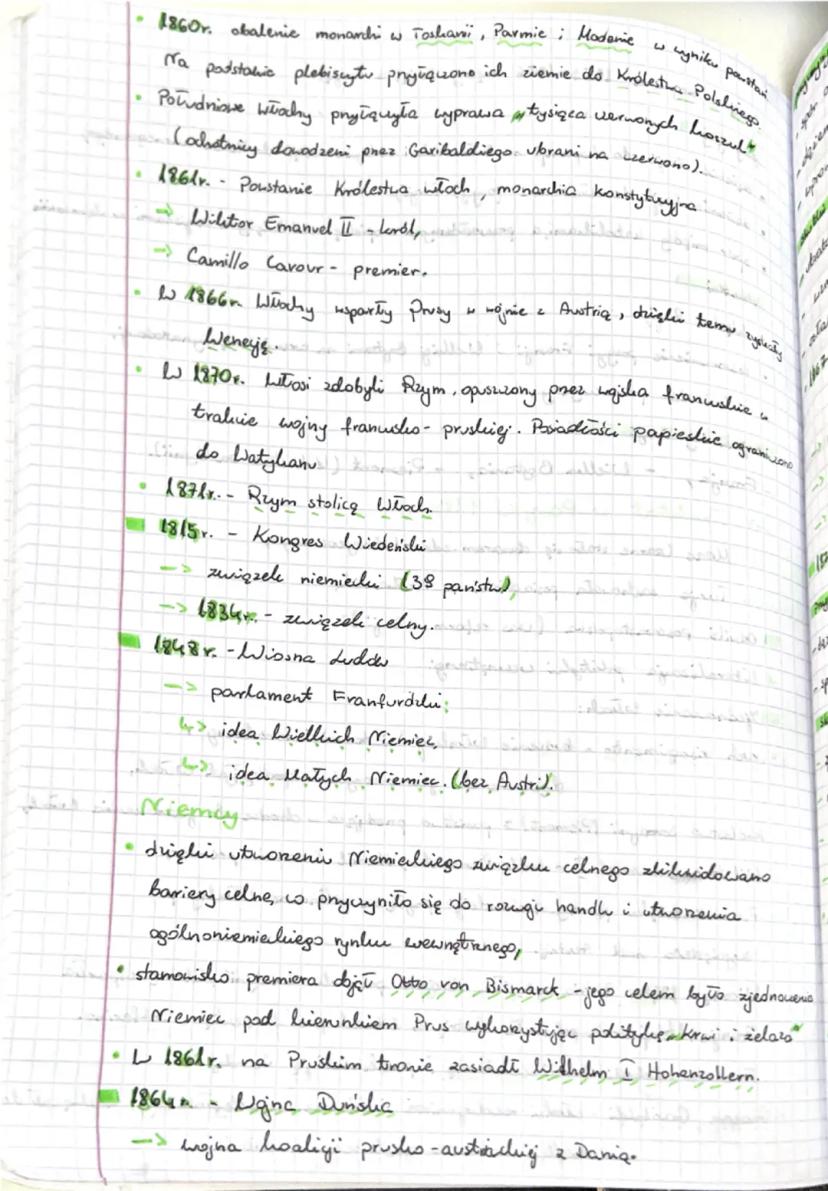 • 1860r. obalenie monarchi w Toskanii, Parmie i Modenie w wyniku powstań
Na podstawie plebiscytu przyłączono ich ziemie do Królestwa Polskiego
• Południowe Włochy przyłączyła wyprawa „tysiąca czerwonych koszul"
(ochotnicy dowodzeni przez Garibaldiego ubrani na czerwono).
• 1861r. - Powstanie Królestwa Włoch, monarchia konstytucyjna
-> Wiktor Emanuel II - król,
-> Camillo Cavour - premier.
• W 1866r. Włochy wsparły Prusy w wojnie z Austrią, dzięki temu zyskały
Wenecję.
• W 1870r. Włosi zdobyli Rzym, opuszczony przez wojska francuskie w
trakcie wojny francusko-pruskiej. Posiadłości papieskie ograniczono
do Watykanu
• 1871r. - Rzym stolicą Włoch.
1815r. - Kongres Wiedeński
-> związek niemiecki (39 państw),
-> 1834r. - związek celny.
1848r. - Wiosna Ludów
-> parlament Franfurcki:
↳> idea Wielkich Niemiec,
↳> idea Małych Niemiec. (bez Austri).
Niemcy
• dzięki utworzeniu Niemieckiego związku celnego zlikwidowano
bariery celne, co przyczyniło się do rozwoju handlu i utworzenia
ogólnoniemieckiego rynku wewnętrznego,
• stanowisko premiera objął Otto von Bismarck - jego celem było zjednoczenie
Niemiec pod kierunkiem Prus wykorzystując politykę „krwi i żelaza"
• W 1861r. na Pruskim tronie zasiadł Wilhelm I Hohenzollern.
1864r. - Wojna Duńska
-> wojna koalicji prusko-austriackiej z Danią.